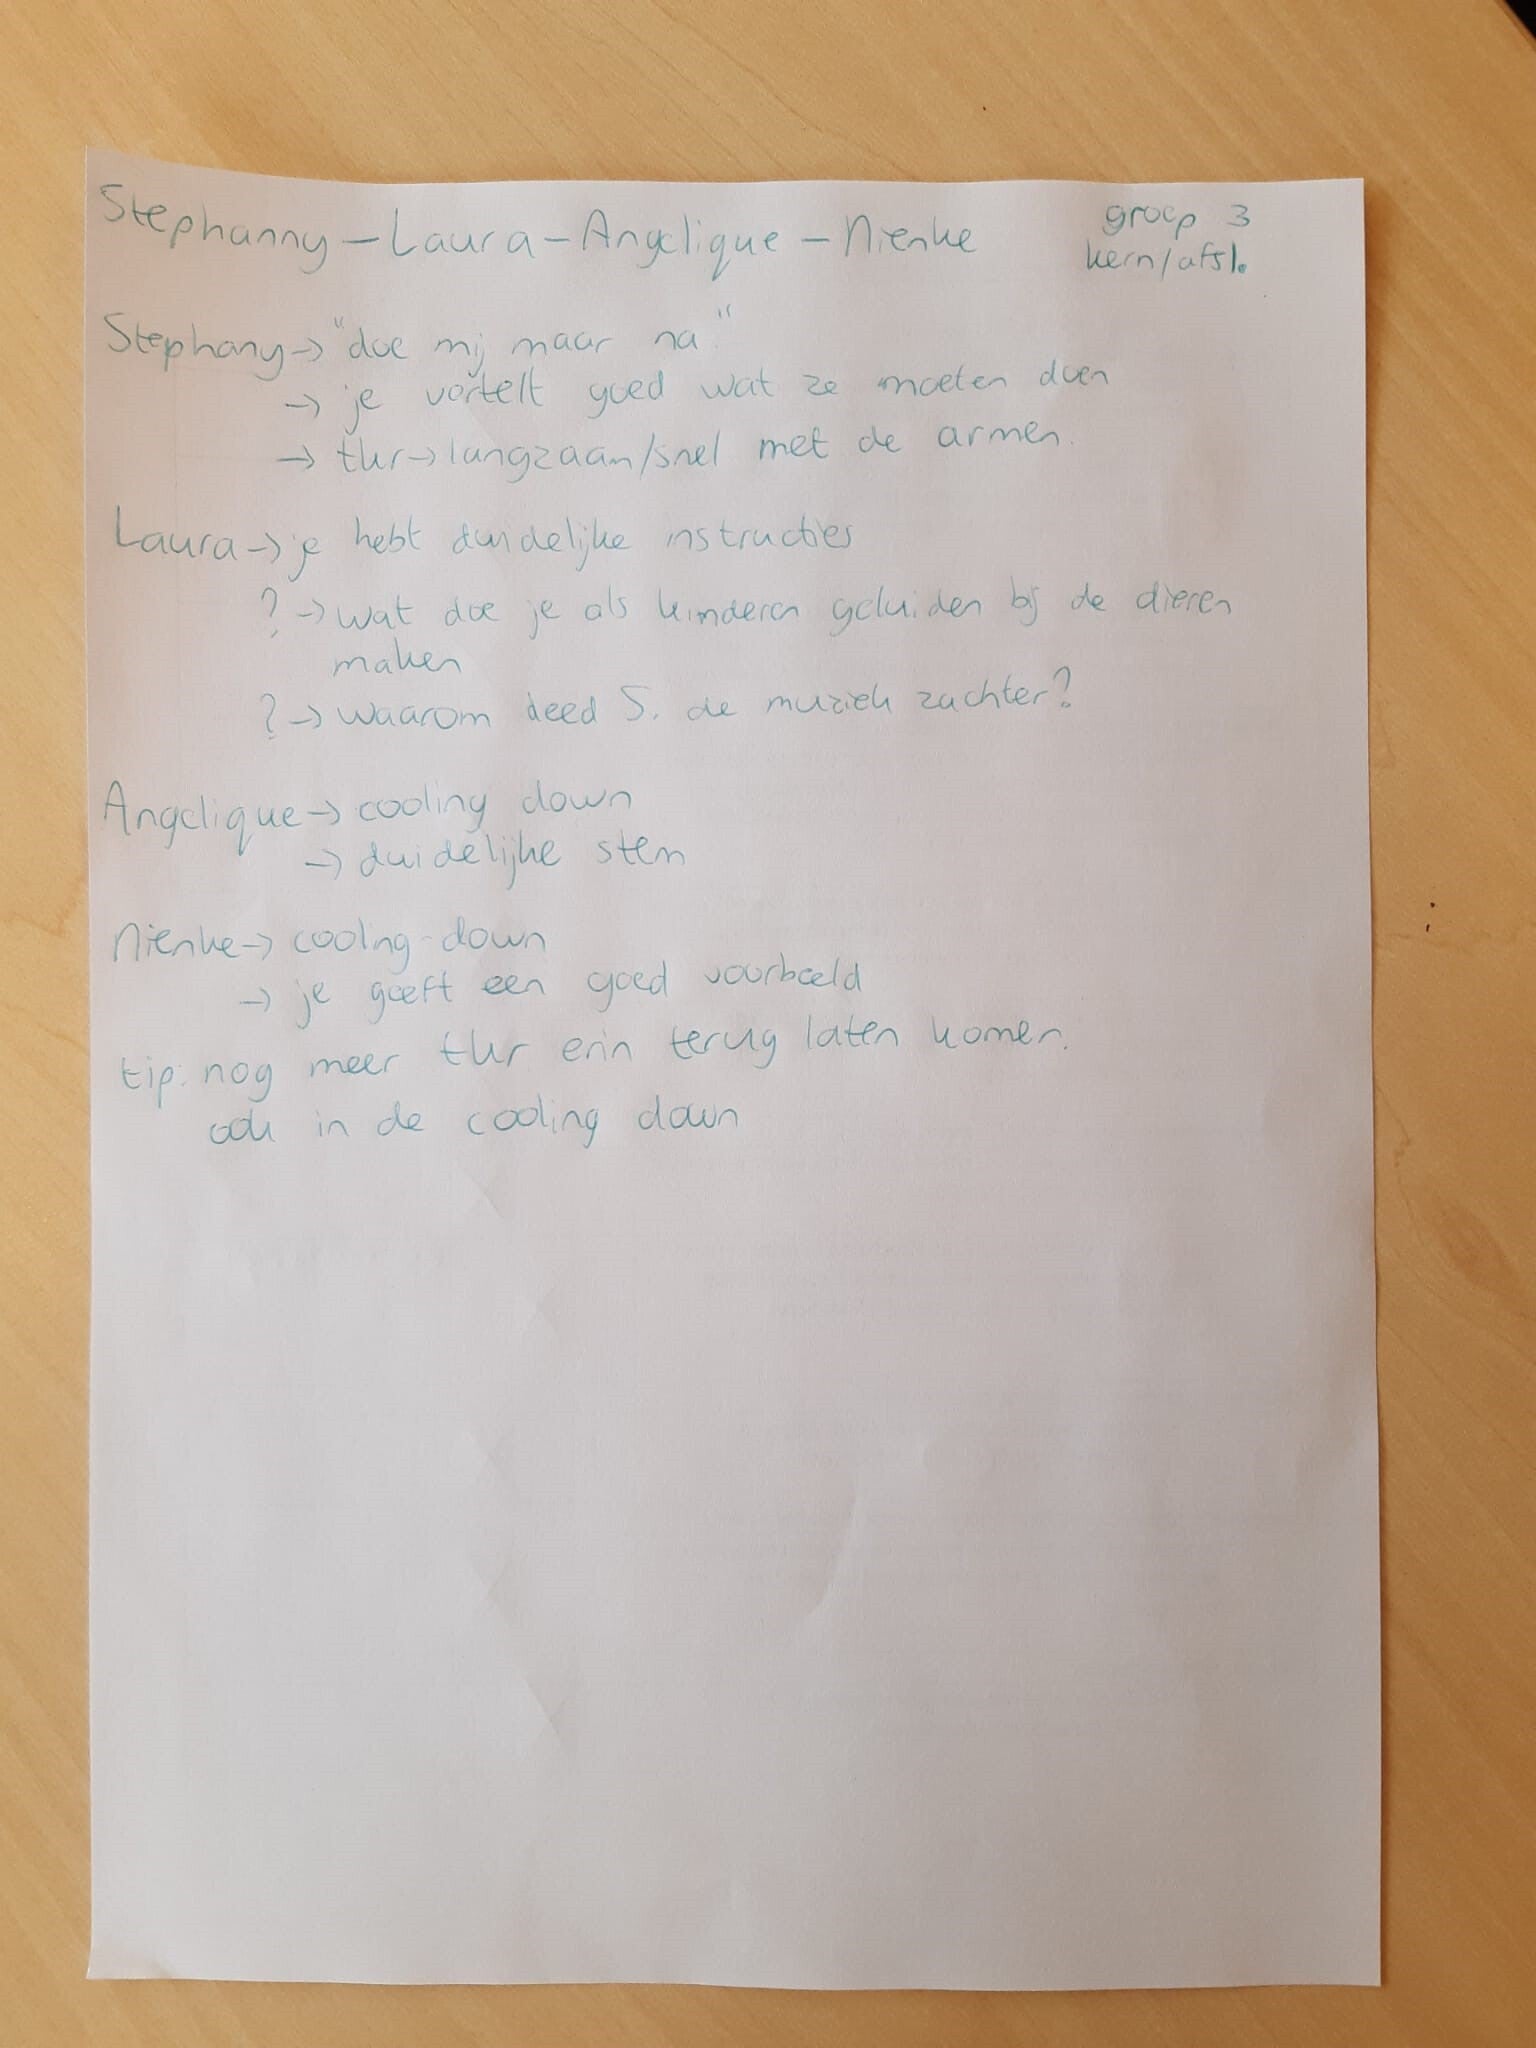 Stephanny - Laura - Angelique - Nienke
groep 3
kern/afsl.
Stephany → "doe mij maar na."
→ je vertelt goed wat ze moeten doen
→ tkr → langzaam/snel met de armen.
Laura → je hebt duidelijke instructies
? → wat doe je als kinderen geluiden bij de dieren
maken
? → waarom deed S. de muziek zachter?
Angelique → cooling down
→ duidelijke stem
Nienke → cooling-down
→ je geeft een goed voorbeeld
tip: nog meer tkr erin terug laten komen.
ook in de cooling down